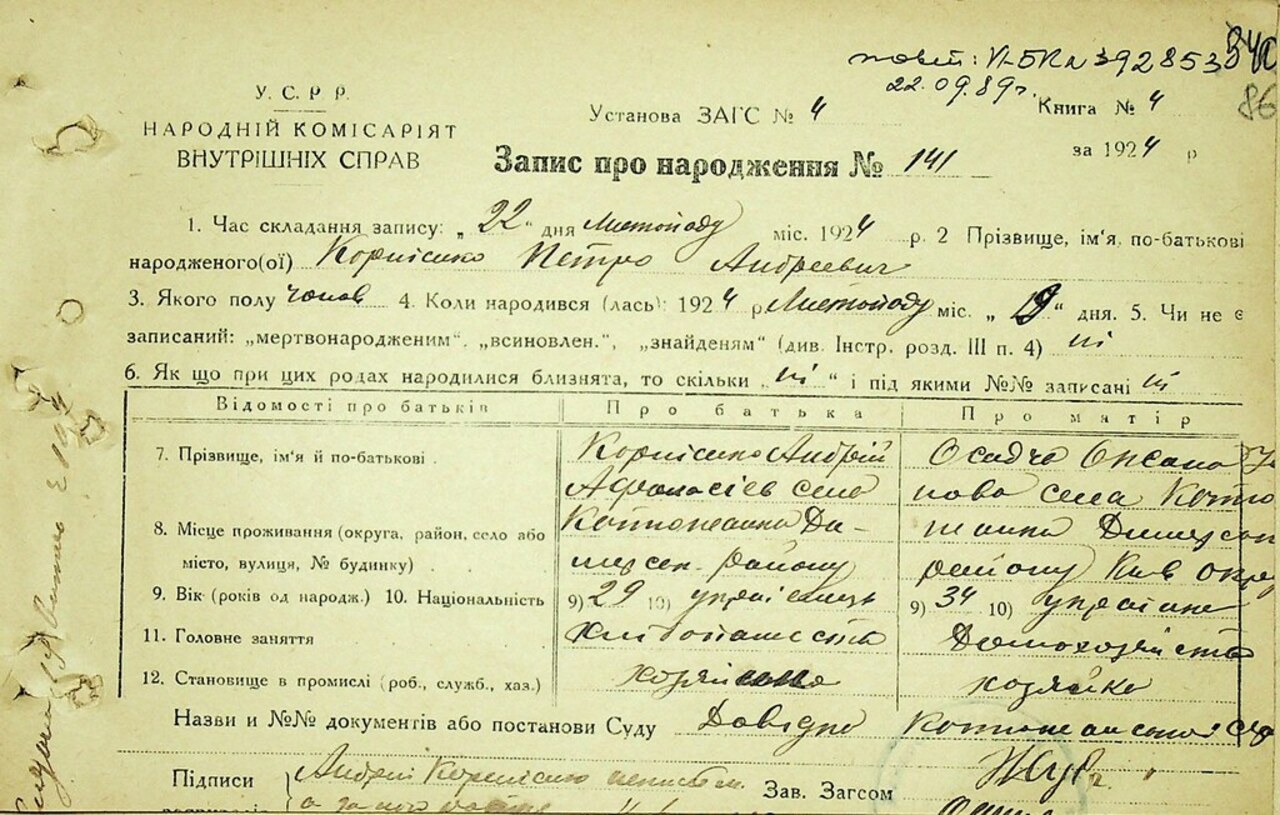 повт: VI-БК № 392853
22.09.89 г.
86
У. С. Р. Р.
НАРОДНІЙ КОМІСАРІЯТ
ВНУТРІШНІХ СПРАВ
Установа ЗАГС № 4
Книга № 4
за 1924 р
Запис про народження № 141
1. Час складання запису: „22“ дня Листопаду міс. 1924 р. 2 Прізвище, ім'я, по-батькові
народженого(ої) Корнієнко Петро Андреевич
3. Якого полу чолов 4. Коли народився (лась): 1924 р Листопаду міс. „19“ дня. 5. Чи не є
записаний: „мертвонародженим“. „всиновлен.“, „знайденям“ (див. Інстр. розд. III п. 4) ні
6. Як що при цих родах народилися близнята, то скільки „ні“ і під якими №№ записані ні
Відомості про батьків Про батька Про матір
7. Прізвище, ім'я й по-батькові Корнієнко Андрій Осадча Оксана
Афонасіев село нова села Котю
8. Місце проживання (округа, район, село або Котюжанка Ди- жанка Димерск
місто, вулиця, № будинку) мерск. району району Київ окру
9. Вік (років од народж.) 10. Національність 9) 29 10) украінець 9) 34 10) украінка
11. Головне заняття хлібопашество Домохозяйство
12. Становище в промислі (роб., служб., хаз.) хозяйка
Назви и №№ документів або постанови Суду Довідка Котюжанської
Підписи Андрій Корнієнко Зав. Загсом